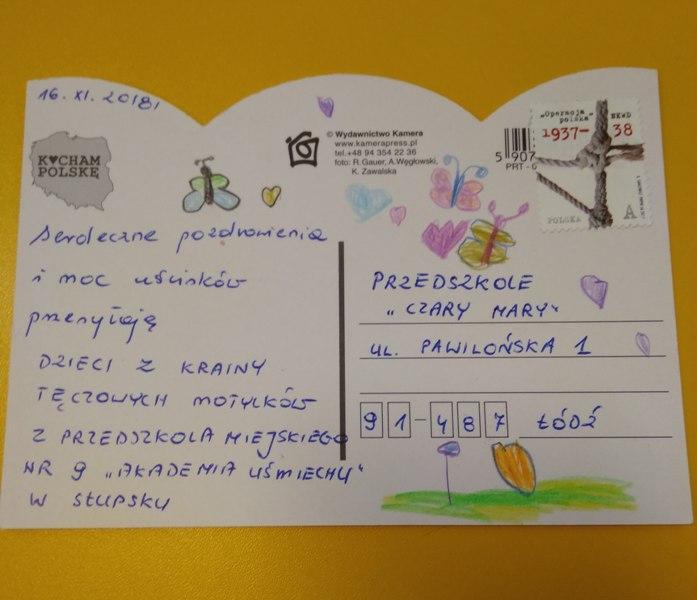 16. XI. 2018r
K♥CHAM
POLSKĘ
Serdeczne pozdrowienia
i moc uścisków
przesyłają
DZIECI Z KRAINY
TĘCZOWYCH MOTYLKÓW
Z PRZEDSZKOLA MIEJSKIEGO
NR 9 „AKADEMIA UŚMIECHU"
W SŁUPSKU
© Wydawnictwo Kamera
www.kamerapress.pl
tel.+48 94 354 22 36
foto: R.Gauer, A.Węgłowski,
K. Zawalska
5 907
PRT-
„Operacja polska" NKWD
1937-38
POLSKA
A
PRZEDSZKOLE
„CZARY MARY"
UL. PAWILOŃSKA 1
91-487 ŁÓDŹ